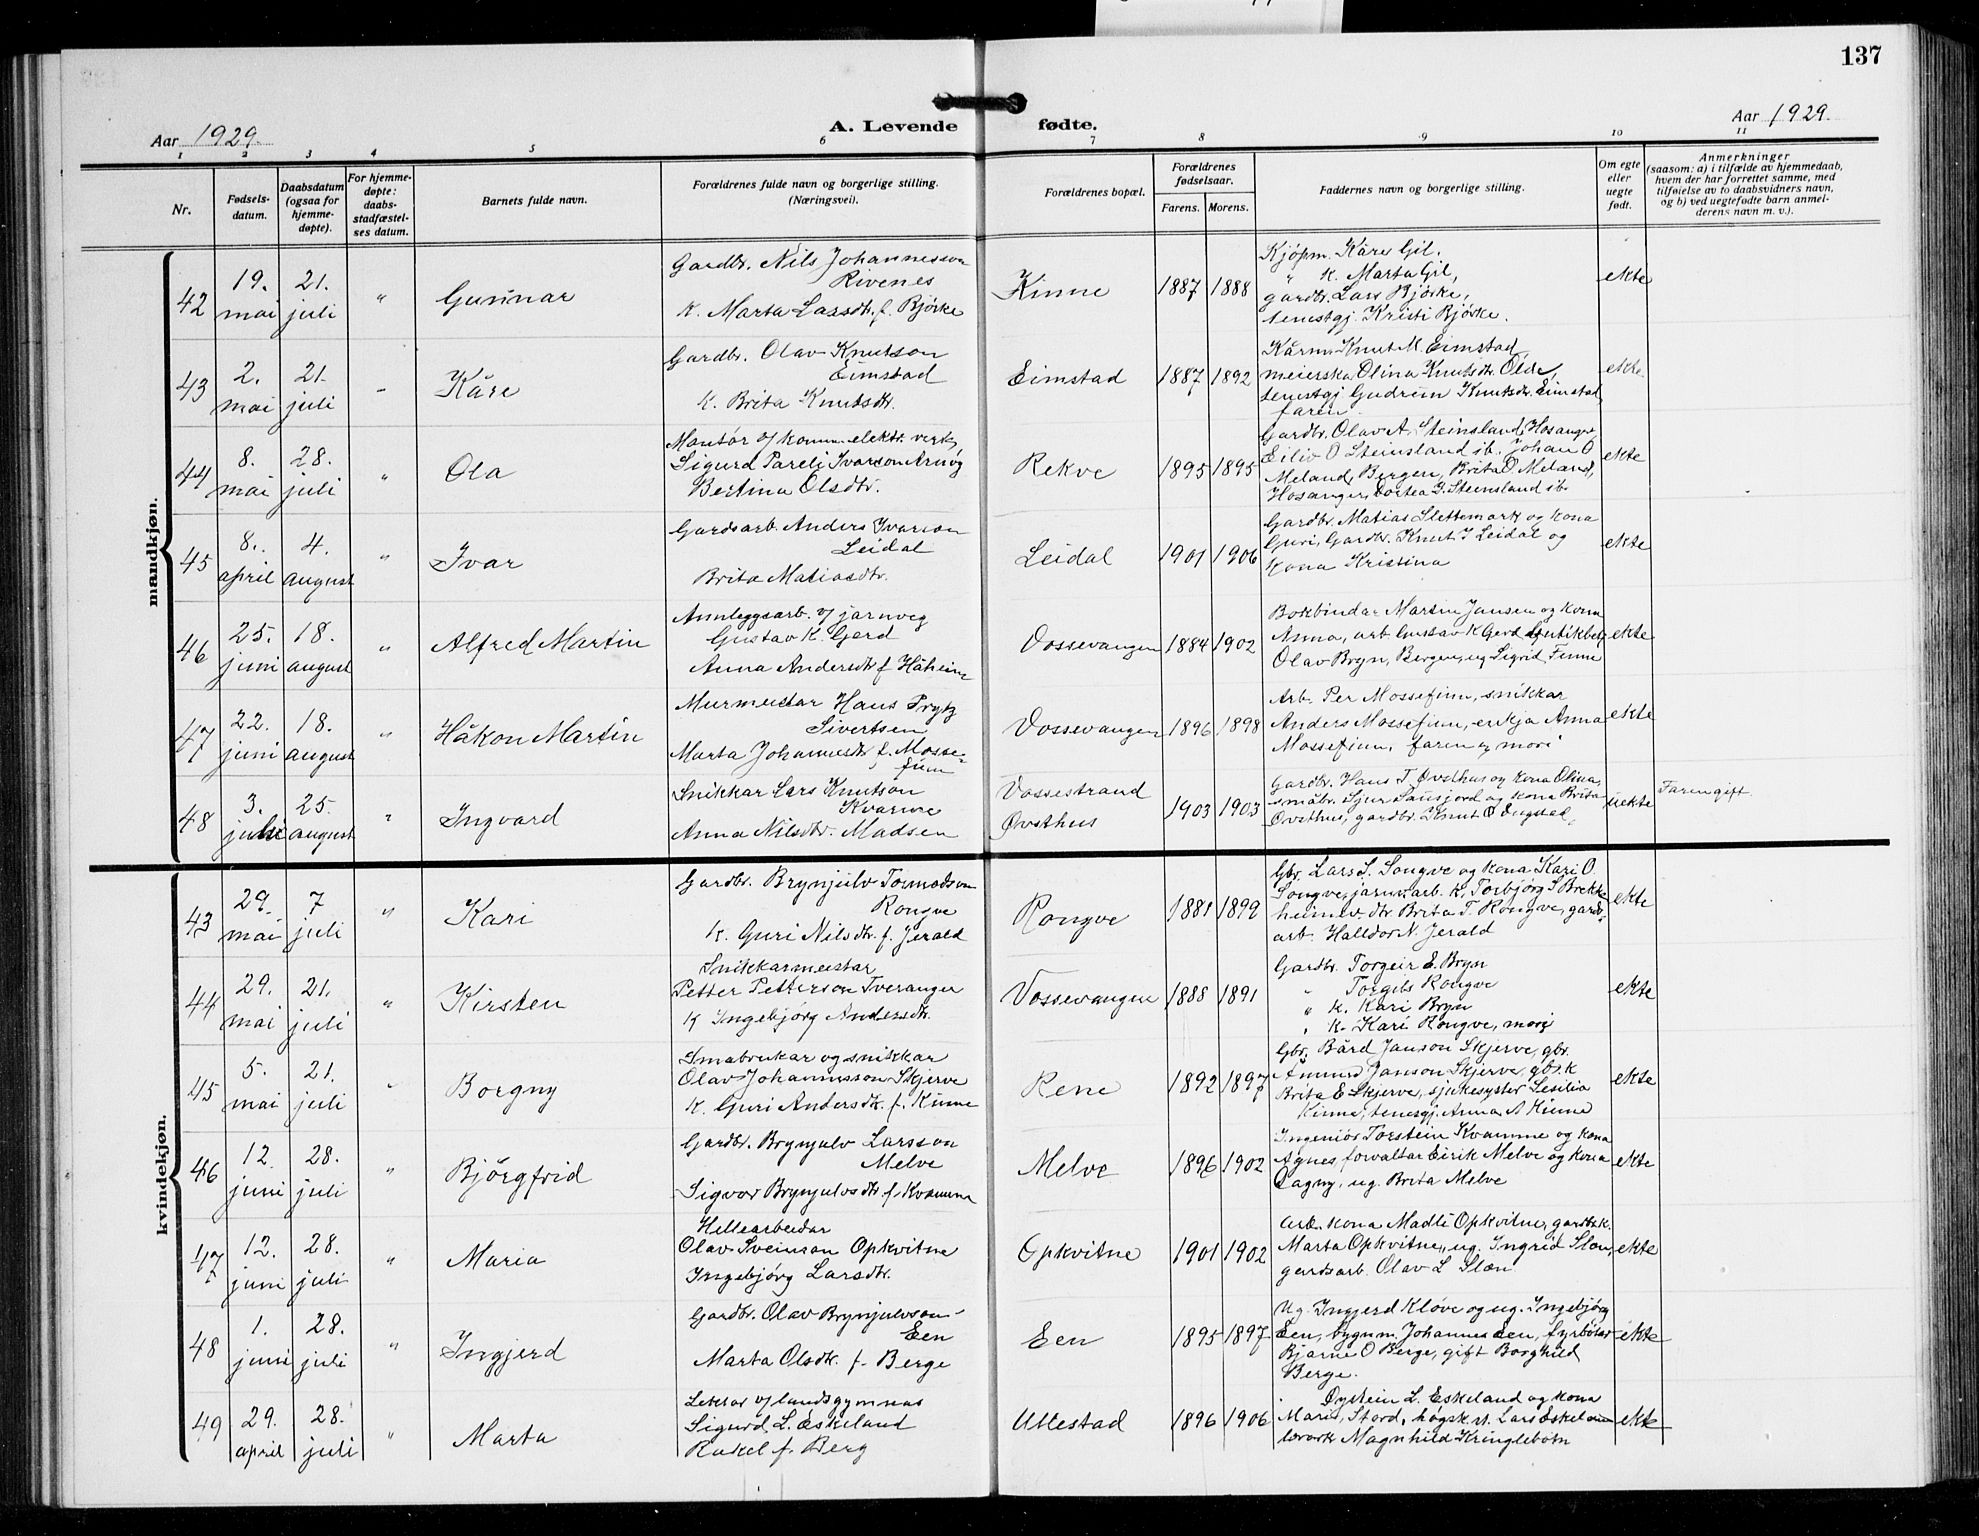 137
Aar 1929.
A. Levende fødte.
Aar 1929.
1 2 3 4 5 6 7 8 9 10 11
Nr.
Fødsels-
datum.
Daabsdatum
(ogsaa for
hjemme-
døpte).
For hjemme-
døpte:
daabs-
stadfæstel-
ses datum.
Barnets fulde navn.
Forældrenes fulde navn og borgerlige stilling.
(Næringsvei).
Forældrenes bopæl.
Forældrenes
fødselsaar.
Farens. Morens.
Faddernes navn og borgerlige stilling.
Om egte
eller
uegte
født.
Anmerkninger
(saasom: a) i tilfælde av hjemmedaab,
hvem der har forrettet samme, med
tilføielse av to daabsvidners navn,
og b) ved uegtefødte barn anmel-
derens navn m. v.).
mandkjøn.
42
19.
mai
21.
juli
"
Gunnar
Gardbr. Nils Johannesson
Rivenes
k. Marta Larsdtr. f. Bjørke
Kinne
1887 1888
Kjøpm. Kåre Gil.
" k. Marta Gil,
gardbr. Lars Bjørke,
tenestgj. Kristi Bjørke.
ekte
43
2.
mai
21.
juli
"
Kåre
Gardbr. Olav Knutson
Eimstad
k. Brita Knutsdtr.
Eimstad
1887 1892
Kårm. Knut M. Eimstad,
meierska Olina Knutsdtr. Olde,
tenestgj. Gudrun Knutsdtr. Eimstad
faren.
ekte
44
8.
mai
28.
juli
"
Ola
Montør v/ komm. elektr. verk,
Sigurd Pareli Ivarson
Bertina Olsdtr.
Rekve
1895 1895
Gardbr. Olav A. Steinsland, Hosanger,
Eiliv O Steinsland ib., Johan O
Meland, Bergen, Brita O. Meland,
Hosanger, Dortea Steinsland ib.
ekte
45
8.
april
4.
august
"
Ivar
Gardsarb. Anders Ivarson
Leidal
Brita Matiasdtr.
Leidal
1901 1906
Gardbr. Matias Slettemark og kona
Guri, Gardbr. Knut I Leidal og
kona Kristina
ekte
46
25.
juni
18.
august
"
Alfred Martin
Annleggsarb. v/ jarnveg
Gustav K. Gerd
Anna Andersdtr. f. Håheim
Vossevangen
1884 1902
Bokbindar Martin Jansen og kona
Anna, arb Gustav K Gerd
Olav Bryn, Bergen, ug Sigrid Finne
ekte
47
22.
juni
18.
august
"
Håkon Martin
Murmeistar Hans Prytz
Sivertsen
Marta Johannesdtr. f. Mosse-
finn
Vossevangen
1896 1898
Arb. Per Mossefinn, snikkar
Anders Mossefinn, enkja Anna
Mossefinn, faren og mori
ekte
48
3.
juli
25.
august
"
Ingvard
Snikkar Lars Knutson
Kvarme
Anna Nilsdtr. Madsen
Vossestrand
Øvsthus
1903 1903
Gardbr. Hans T. Øvsthus og kona Olina,
småbr. Sjur og kona Brita
Øvsthus, gardbr. Knut O Engstad,
uekte
Faren gift
kvindekjøn.
43
29.
mai
7
juli
"
Kari
Gardbr. Brynjulv Tormodson
Rongve
k. Guri Nilsdtr. f. Jerald
Rongve
1881 1899
Gbr. Lars S. Songve og kona Kari O
Songve, jarnv. arb. k. Torbjørg S Brekke
heimev. dtr Brita T. Rongve, gards-
arb. Halldor N. Jerald
ekte
44
29.
mai
21.
juli
"
Kirsten
Snikkarmeistar
Petter Petterson Tveranger
k Ingebjörg Andersdtr.
Vossevangen
1888 1891
Gardbr. Torgeir E. Bryn
" Torgils Rongve
" k. Kari Bryn
" k. Kari Rongve, mori
ekte
45
5.
mai
21.
juli
"
Borgny
Småbrukar og snikkar
Olav Johannesson Skjerve
k. Guri Andersdtr. f. Kinne
Rene
1892 1897
Gbr. Bård Janson Skjerve, gbr.
Åmund Janson Skjerve, gbr. k
Brita E Skjerve, sjukesyster Sesilia
Kinne, tenesgj. Anna A Kinne
ekte
46
12.
juni
28.
juli
"
Björgfrid
Gardbr. Brynjulv Larsson
Melve
Sigvor Brynjulvsdtr. f. Kvamme
Melve
1896 1902
Ingeniör Torstein Kvamme og kona
Agnes, forvaltar Eirik Melve og kona
Dagny, ug. Brita Melve
ekte
47
12.
juni
28.
juli
"
Maria
Hellearbeidar
Olav Sveinson Opkvitne
Ingebjörg Larsdtr.
Opkvitne
1901 1902
Arb. kona Madli Opkvitne, gardbr. k.
Marta Opkvitne, ug. Ingrid Slæn,
gardsarb. Olav L Slæn
ekte
48
1.
juni
28.
juli
"
Ingjerd
Gardbr. Olav Brynjulvson
Een
Marta Olsdtr. f. Berge
Een
1895 1897
Ug. Ingjerd Kløve og ug. Ingebjørg
Een, bygnm. Johannes Een, fyrbötar
Bjarne O Berge, gift Borghild
Berge.
ekte
49
29.
april
28.
juli
"
Marta
Lektor v/ landsgymnas
Sigurd L. Eskeland
Rakel f. Berg
Ullestad
1896 1906
Øystein L. Eskeland og kona
Mari, Stord, høgsk. st. Lars Eskeland
lærark Magnhild Kringlebotn
ekte